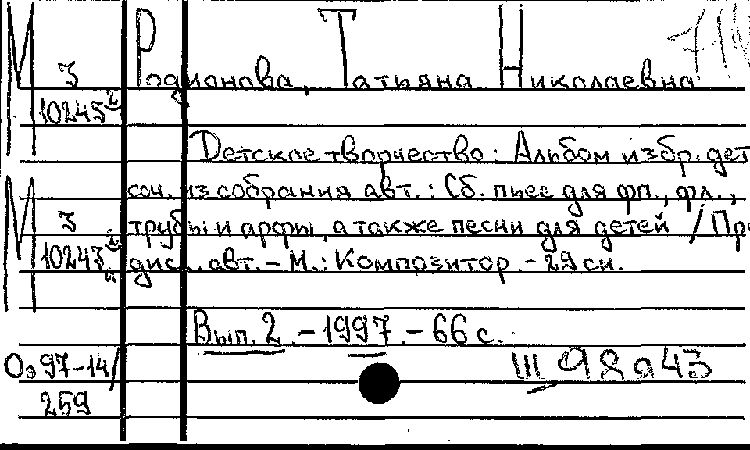 М З 10245
Родионова, Татьяна Николаевна
Детское творчество: Альбом избр. дет
соч. из собрания авт.: Сб. пьес для фп., фл.,
М З 10243
трубы и арфы, а также песни для детей / Пре
дисл. авт. - М.: Композитор. - 29 см.
Вып. 2. - 1997. - 66 с.
Оз 97-14/
259
III 98 а 43